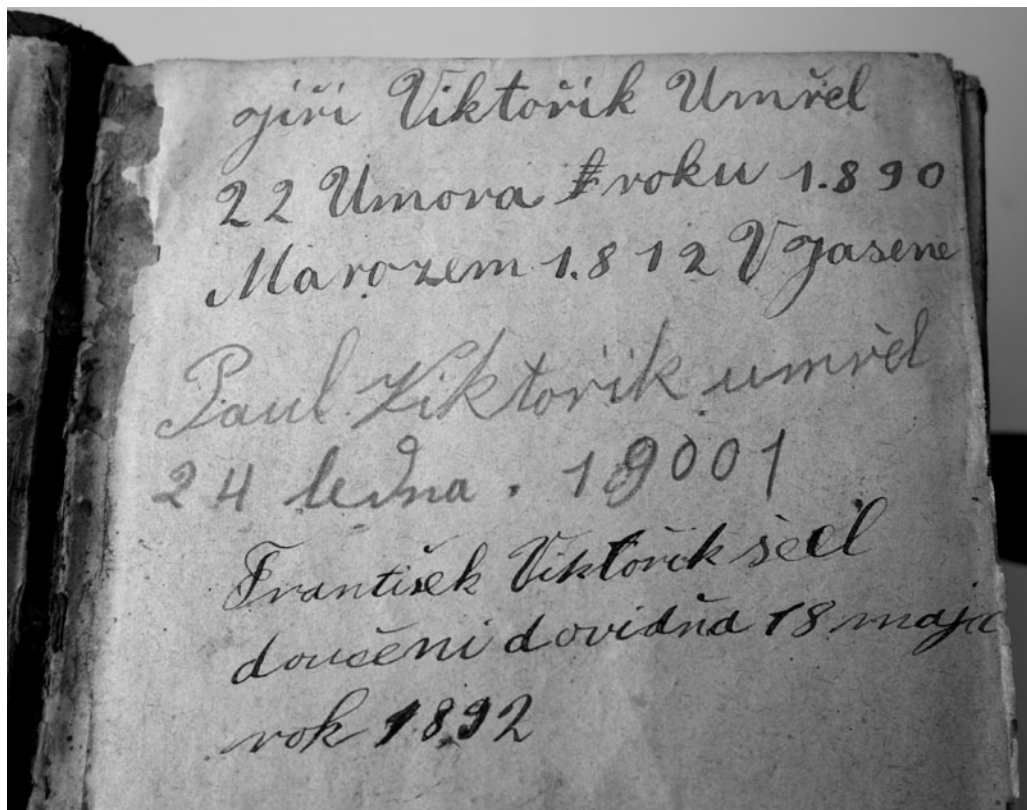 Jiři Viktořik Umřel
22 Unora roku 1.890
Marozem 1.812 V Jasene
Paul Viktořik umřel
24 ledna . 19001
František Viktořik šeel
doučeni dovidňa 18 maja
rok 1892